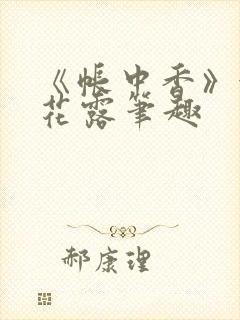 《帐中香》
花露笔趣
郝康理